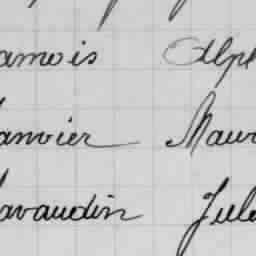 amois Alph
anvier Maur
avaudin Jule